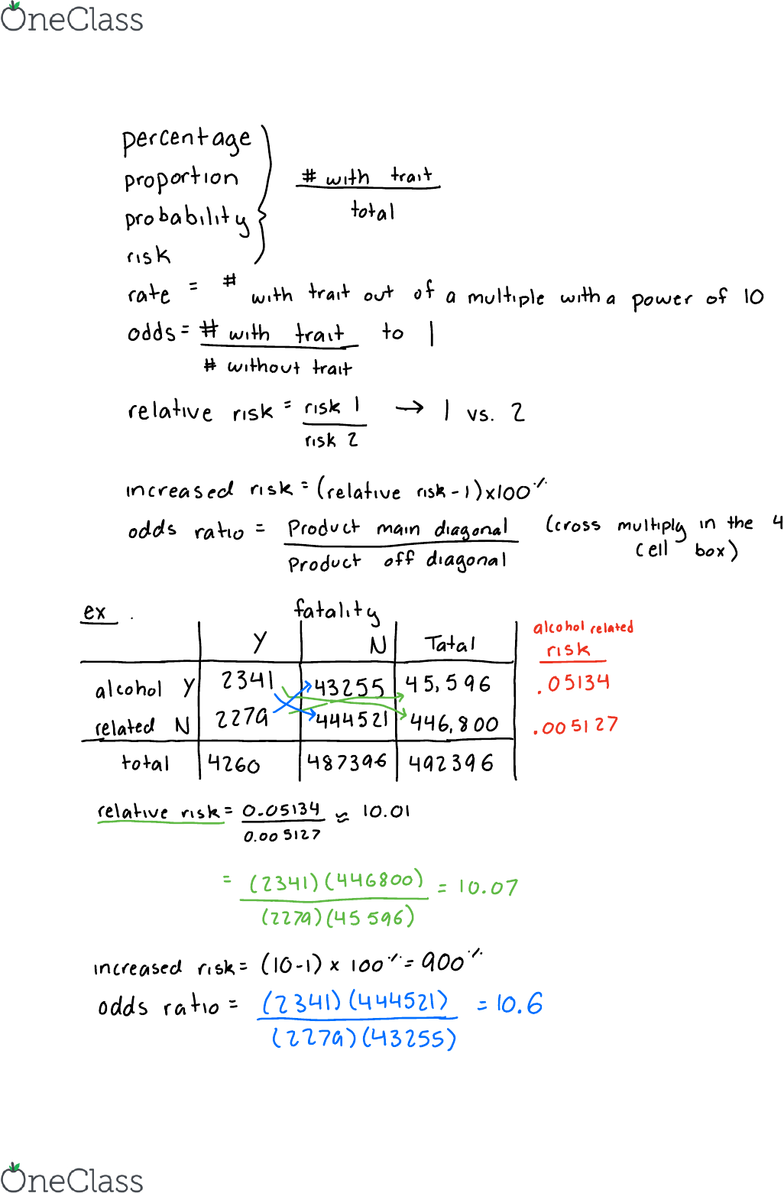 OneClass
percentage
proportion
probability
risk
# with trait
total
rate = # with trait out of a multiple with a power of 10
odds = # with trait to 1
# without trait
relative risk = risk 1 → 1 vs. 2
risk 2
increased risk = (relative risk - 1) x 100%
odds ratio = Product main diagonal (cross multiply in the 4
Product off diagonal cell box)
ex.
fatality
Y N Tatal
alcohol Y 2341 43255 45,596
related N 2279 444521 446,800
total 4260 487396 492396
alcohol related
risk
.05134
.005127
relative risk = 0.05134 ≈ 10.01
0.005127
= (2341)(446800) = 10.07
(2279)(45596)
increased risk = (10-1) x 100% = 900%
odds ratio = (2341)(444521) = 10.6
(2279)(43255)
OneClass